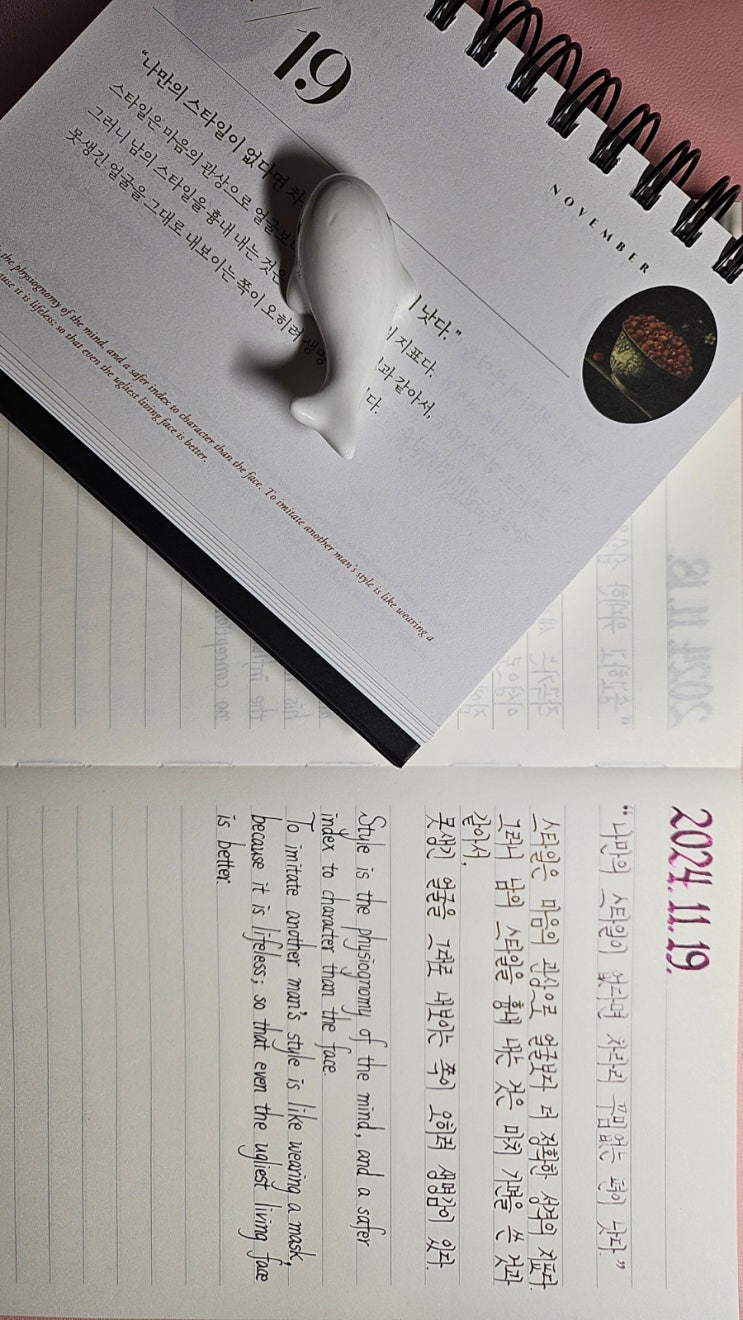 19
NOVEMBER
“나만의 스타일이 없다면 차 낫다.”
스타일은 마음의 관상으로 얼굴보다 지표다.
그러니 남의 스타일을 흉내 내는 것은 과 같아서,
못생긴 얼굴을 그대로 내보이는 쪽이 오히려 생명 다.
the physiognomy of the mind, and a safer index to character than the face. To imitate another man's style is like wearing a
because it is lifeless; so that even the ugliest living face is better.
2024. 11. 18.
2024. 11. 19.
“나만의 스타일이 없다면 차라리 꾸밈없는 편이 낫다.”
스타일은 마음의 관상으로 얼굴보다 더 정확한 성격의 지표다.
그러니 남의 스타일을 흉내 내는 것은 마치 가면을 쓴 것과
같아서,
못생긴 얼굴을 그대로 내보이는 쪽이 오히려 생명감이 있다.
Style is the physiognomy of the mind, and a safer
index to character than the face.
To imitate another man's style is like wearing a mask,
because it is lifeless; so that even the ugliest living face
is better.